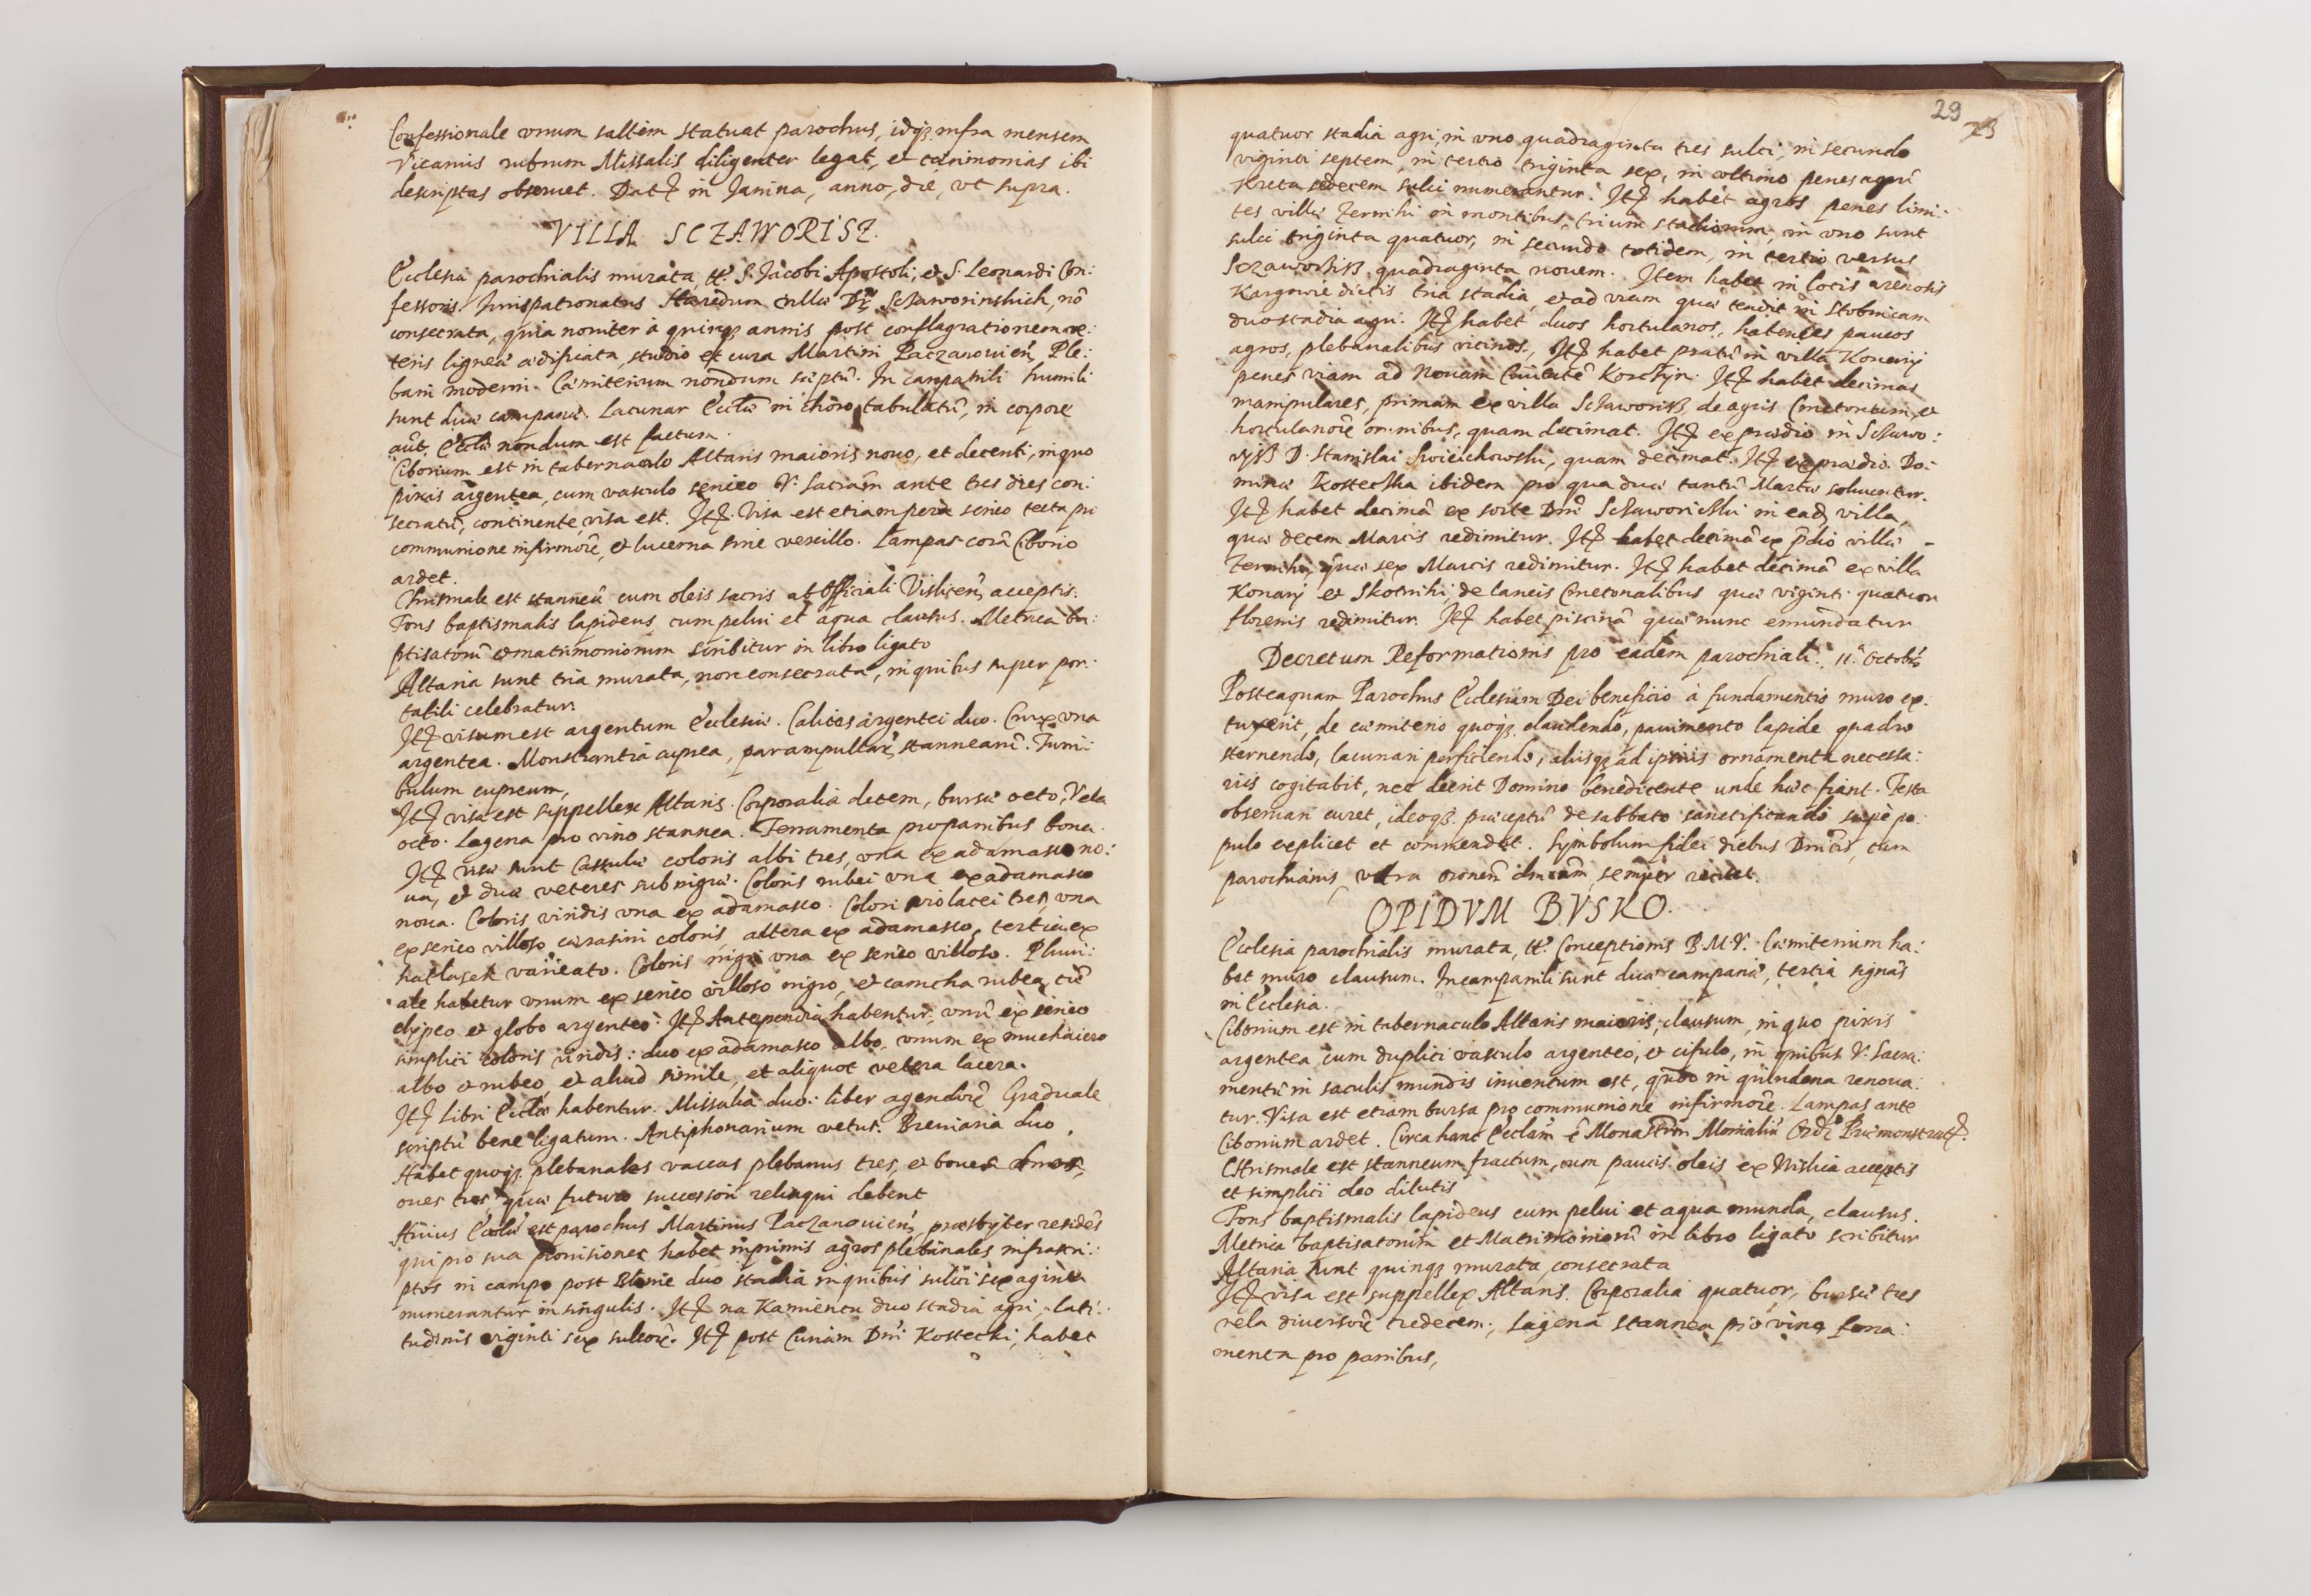 Confessionale vnum saltem statuat parochus, idq; infra mensem
Vicarius rubrum Missalis diligenter legat, et cærimonias ibi
descriptas obseruet. Dat in Janina, anno, die, vt supra.
VILLA SCZAWORISZ.
Ecclesia parochialis murata, tt. S. Jacobi Apostoli, et S. Leonardi Con:
fessoris. Jurispatronatus Hæredum villæ Sczaworinskich, nō
consecrata, quia nouiter à quinq; annis post conflagrationem ve:
teris ligneæ ædificiata, studio et cura Martini Paczanouien, Ple:
bani moderni. Cæmiterium nondum septū. In campanili humili
sunt duæ campanæ. Lacunar Ecclæ in choro tabulatū, in corpore
aūt. Ecclæ nondum est factum.
Ciborium est in tabernaculo Altaris maioris nouo, et decenti, in quo
pixis argentea, cum vasculo sericeo V. Sacram ante tres dies con:
secratū, continente, visa est. It. Visa est etiam pera serico tecta pro
communione infirmorū, et lucerna sine vexillo. Lampas corā Ciborio
ardet.
Chrismale est stanneū cum oleis sacris ab Officiali Vislicen, acceptis.
Fons baptismalis lapideus cum pelui et aqua clausus. Metrica ba:
ptisatorū et matrimoniorum scribitur in libro ligato
Altaria sunt tria murata, non consecrata, in quibus super por:
tatili celebratur.
It visum est argentum Ecclesiæ. Calices argentei duo. Crux vna
argentea. Monstrantia cuprea, par ampullarū, stannearū. Turri:
bulum cupreum,
It visa est suppellex Altaris. Corporalia decem, bursæ octo, Vela
octo. Lagena pro vino stannea. Ferramenta pro panibus bona.
It visæ sunt Cassulæ coloris albi tres, vna ex adamasco no:
ua, et duæ veteres subnigræ. Coloris rubei vna ex adamasco
noua. Coloris viridis vna ex adamasco. Coloris violacei tres, vna
ex serico villoso carasini coloris, altera ex adamasco, tertia ex
hatlasek varieato. Coloris nigri vna ex serico villoso. Pluui:
ale habetur vnum ex serico villoso nigro, et camcha rubea, cū
clypeo et globo argenteo. It Antependia habentur, vnū ex serico
simplici coloris viridis: duo ex adamasco albo, vnum ex muchaiero
albo et rubeo, et aliud simile, et aliquot vetera lacera.
It Libri Ecclæ habentur. Missalia duo: liber agendorū Graduale
scriptū bene ligatum. Antiphonarium vetus. Breuiaria duo.
Habet quoq; plebanales vaccas plebanus tres, et boues
oues tres, quæ futuro successori relinqui debent
Huius Ecclæ est parochus Martinus Paczanouien, præsbyter residēs
qui pro sua prouisione habet inprimis agros plebanales infrascri:
ptos in campo post duo stadia in quibus sulci sexaginta
numerantur in singulis. It na Kamiencu duo stadia agri, lati:
tudinis viginti sex sulcorū. It post Curiam Dni Kostecki, habet
29
quatuor stadia agri, in vno quadraginta tres sulci, in secundo
viginti septem, in tertio triginta sex, in vltimo penes agrū
sedecem sulci numerantur. It habet agros penes limi:
tes villæ Zerniki in montibus, trium stadiorum, in vno sunt
sulci triginta quatuor, in secundo totidem, in tertio versus
Sczaworisz quadraginta nouem. Item habet in locis arenosis
Kargowie dictis tria stadia, et ad viam quæ tendit in Stobnicam
duo stadia agri. It habet duos hortulanos, habentes paucos
agros, plebanalibus vicinos, It habet pratū in villa Konary
penes viam ad Nouam Ciuitatē Korczyn. It habet decimas
manipulares, primam ex villa Sczaworisz, de agris Cmetonum, et
hortulanorū omnibus, quam decimat. It ex prædio in Sczawo:
rysz D. Stanislai Swieichowski, quam decimat. It ex prædio Do:
minæ Kosteczka ibidem pro qua duæ tantū Marcæ soluentur.
It habet decimā ex sorte Dni Sczaworiczki in ead, villa,
quæ decem Marcis redimitur. It habet decimā ex pdio villæ
Zerniki, quæ sex Marcis redimitur. It habet decimā ex villa
Konary et Skotniki, de laneis Cmetonalibus quæ viginti quatuor
florenis redimitur. It habet piscinā quæ nunc emundatur
Decretum Reformationis pro eadem parochiali. 11. Octobr,
Posteaquam Parochus Ecclesiam Dei beneficio à fundamentis muro ex:
tuxerit, de cæmiterio quoq; claudendo, pauimento lapide quadro
sternendo, lacunari perficiendo, alijsq; ad ipsius ornamenta necessa:
rijs cogitabit, nec deerit Domino benedicente unde hæc fiant. Festa
obseruari curet, ideoq; præceptū de sabbato sanctificando sæpe po:
pulo explicet et commendet. Symbolum fidei diebus Dnicis, cum
parochianis, vltra oronem dnicam, semper recitet.
OPIDVM BVSKO.
Ecclesia parochialis murata, tt. Conceptionis B.M.V. Cæmiterium ha:
bet muro clausum. In campanili sunt duæ campanæ, tertia signās
in Ecclesia.
Ciborium est in tabernaculo Altaris maioris, clausum, in quo pixis
argentea cum duplici vasculo argenteo, et cifulo, in quibus V. Sacra:
mentū in saculis mundis inuentum est, quod in quindena renoua:
tur. Visa est etiam bursa pro communione infirmorū. Lampas ante
Ciborium ardet. Circa hanc Ecclam ē Monastrm Monialiū Ordis Præmonstrat.
Chrismale est stanneum fractum, cum paucis oleis ex Vislicia acceptis
et simplici oleo dilutis
Fons baptismalis lapideus cum pelui et aqua munda, clausus.
Metrica baptisatorum et Matrimoniorū in libro ligato scribitur
Altaria sunt quinq; murata, consecrata
It visa est suppellex Altaris. Corporalia quatuor, bursæ tres
vela diuersorū tredecem, Lagena stannea pro vino ferra:
menta pro panibus,